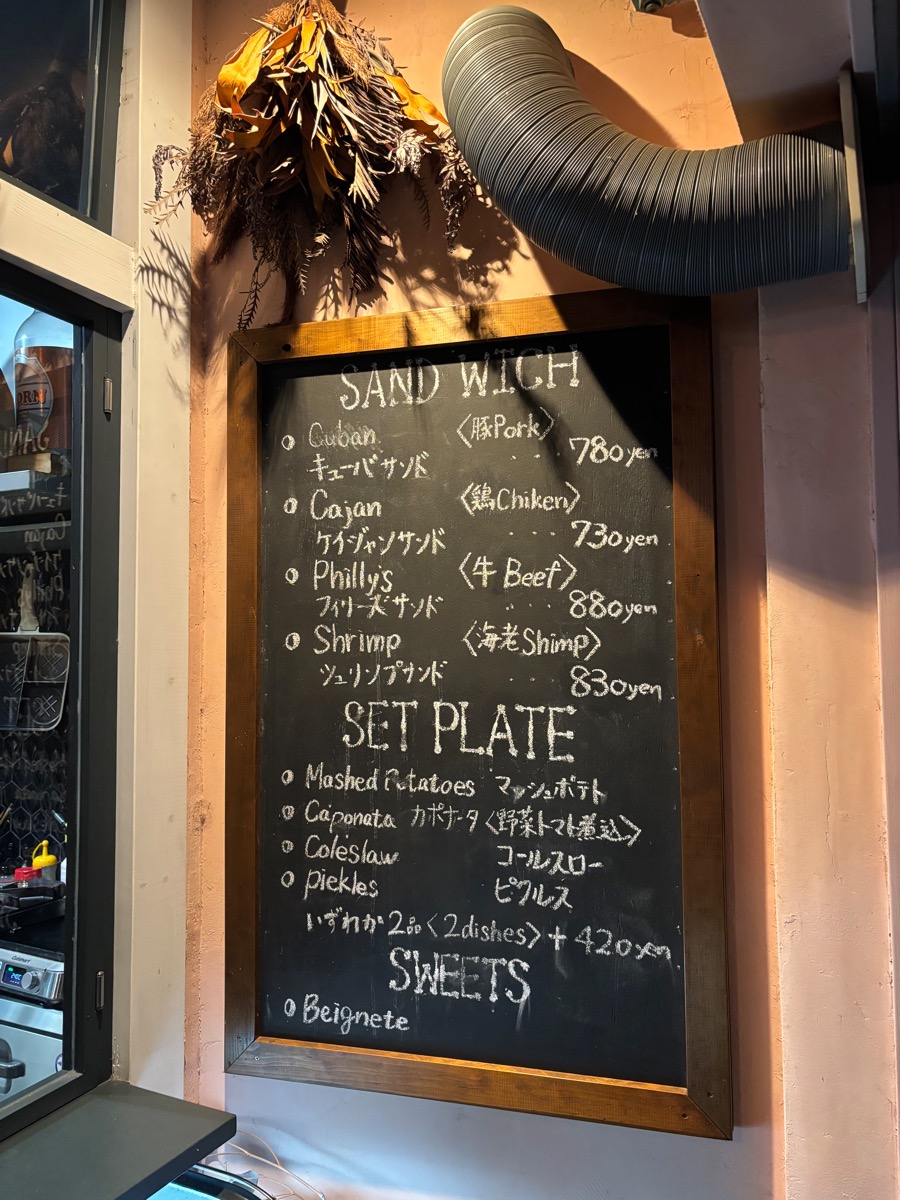 SAND WICH
Cuban 〈豚Pork〉
キューバサンド ････ 780yen
Cajan 〈鶏Chiken〉
ケイジャンサンド ････ 730yen
Philly's 〈牛Beef〉
フィリーズサンド ････ 880yen
Shrimp 〈海老Shimp〉
シュリンプサンド ････ 830yen
SET PLATE
Mashed Potatoes マッシュポテト
Caponata カポナータ〈野菜トマト煮込〉
Coleslaw コールスロー
Piekles ピクルス
いずれか2品〈2dishes〉+420yen
SWEETS
Beignete